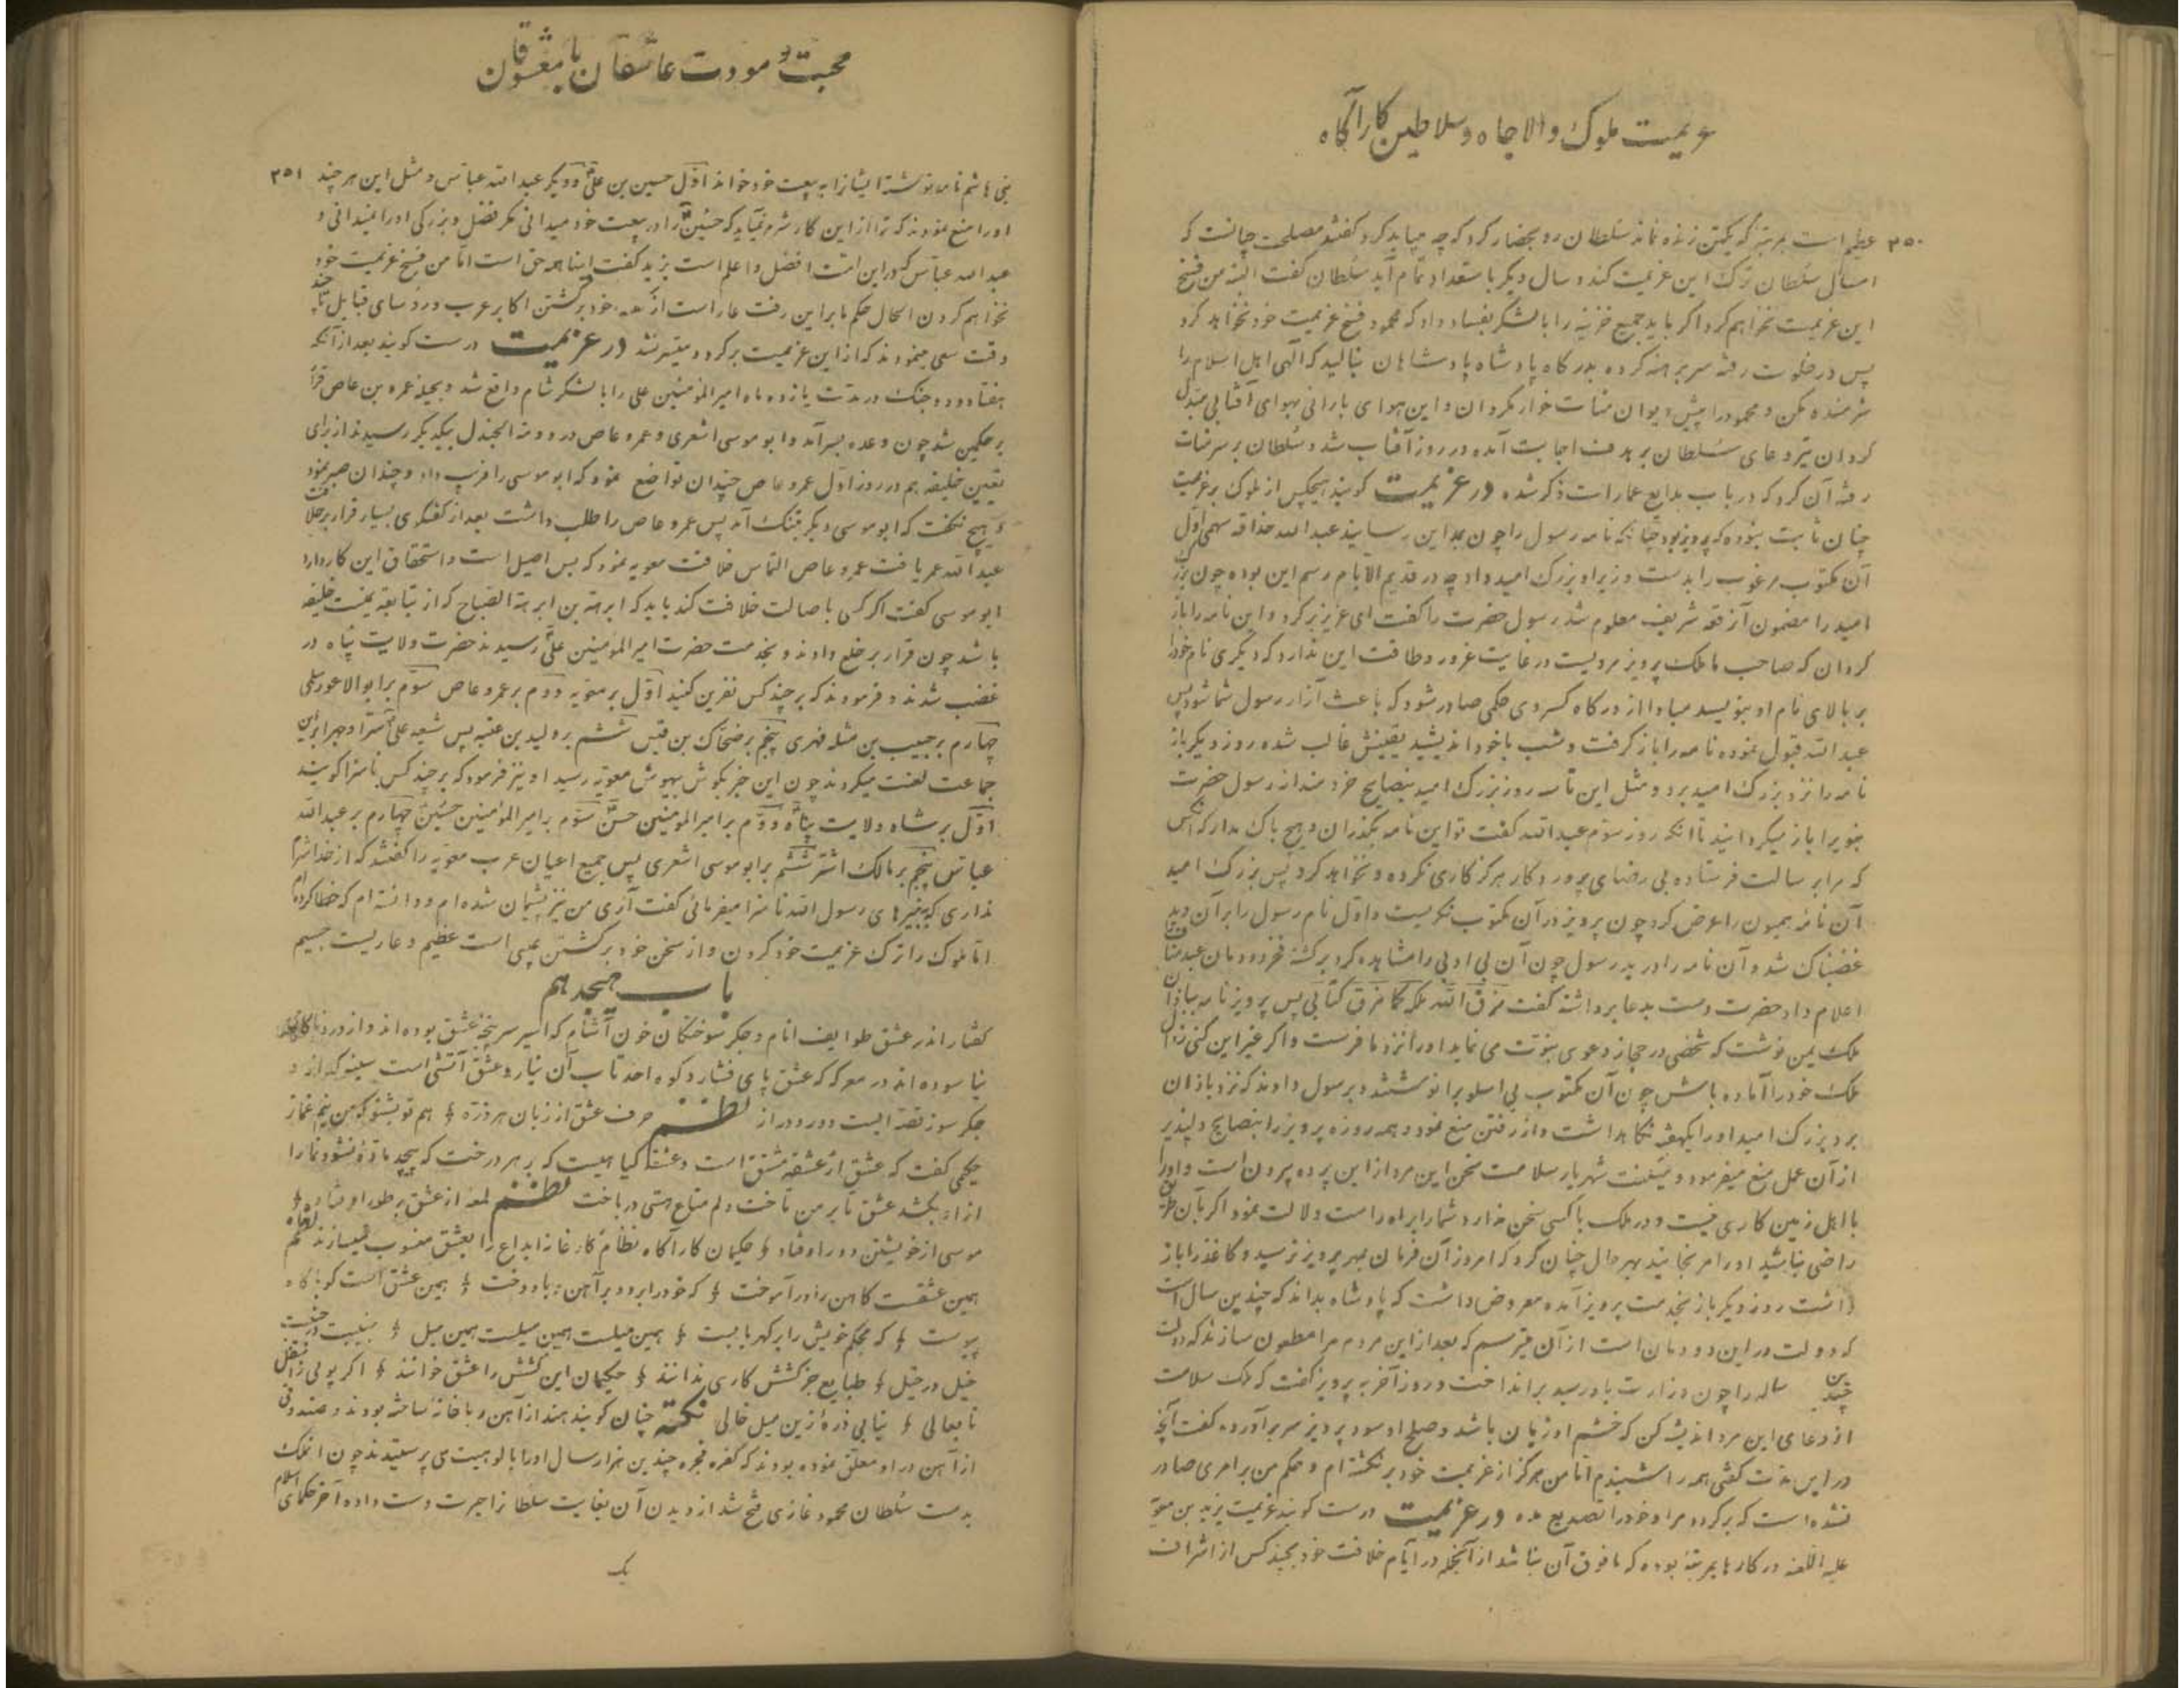 عزیمت ملوک والا جاه و سلاطین کارآگاه
۳۵۰
عظیم است بمرتبه که یکتن زنده نماند سلطان رو بحضار کرد که چه میباید کرد گفتند مصلحت چنانست که
امسال سلطان ترک این عزیمت کند و سال دیگر باستعداد تمام آید سلطان گفت البته من فسخ
این عزیمت نخواهم کرد اگر باید جمیع خزینه را با لشکر بفساد داد که محمود فسخ عزیمت خود نخواهد کرد
پس در خلوت رفته سر برهنه کرده بدرگاه پادشاه پادشاهان بنالید که الهی اهل اسلام را
شرمنده مکن و محمود را پیش دیوان منات خوار مگردان و این هوای بارانی بهوای آفتابی مبدل
گردان تیر دعای سلطان بر هدف اجابت آمده در روز آفتاب شد و سلطان بر سومنات
رفته آن کرد که در باب بدایع عمارات ذکر شده در عزیمت گویند هیچکس از ملوک بر عزیمت
چنان ثابت نبوده که پرویز بود چنانکه نامه رسول را چون بمداین رسانید عبد الله حذافه سهمی اول
آن مکتوب مرغوب را بدست وزیر او بزرک امید داد چه در قدیم الایام رسم این بوده چون بزرگ
امید را مضمون آن رقعه شریف معلوم شد رسول حضرت را گفت ای عزیز برگرد و این نامه را باز
گردان که صاحب ما ملک پرویز مردیست در غایت غرور و طاقت این ندارد که دیگری نام خود را
بر بالای نام او بنویسد مبادا از درگاه کسروی حکمی صادر شود که باعث آزار رسول شما شود پس
عبد الله قبول نموده نامه را باز گرفت و شب با خود اندیشید یقینش غالب شده روز دیگر باز
نامه را نزد بزرک امید برد و مثل این تا سه روز بزرک امید بنصایح خردمندانه رسول حضرت
نبویرا باز میگردانید تا آنکه روز سوم عبد الله گفت تو این نامه بگذران و هیچ باک مدار که آنکس
که مرا برسالت فرستاده بی رضای پروردگار هرگز کاری نکرده و نخواهد کرد پس بزرک امید
آن نامه همیون را عرض کرد چون پرویز در آن مکتوب نگریست و اول نام رسول را بر آن دید
غضبناک شد و آن نامه را درید رسول چون آن بی ادبی را مشاهده کرد برگشته فخر دودمان عبد مناف را
اعلام داد حضرت دست بدعا برداشته گفت مزق الله ملکه کما مزق کتابی پس پرویز نامه بباذان
ملک یمن نوشت که شخصی در حجاز دعوی نبوت می نماید او را نزد ما فرست و اگر غیر این کنی زوال
ملک خود را آماده باش چون آن مکتوب بی اسلوب را نوشتند و برسول دادند که نزد باذان
برد بزرک امید او را یکهفته نگاهداشت و از رفتن منع نمود و همه روزه پرویز را بنصایح دلپذیر
از آن عمل منع میفرمود و میگفت شهریار سلامت سخن این مرد از این پرده بیرون است و او را
با اهل زمین کاری نیست و در ملک با کسی سخن ندارد شما را براه راست دلالت نمود اگر بآن طریق
راضی نباشید او را مرنجانید بهر حال چنان کرد که امروز آن فرمان بمهر پرویز نرسید و کاغذ را باز
داشت روز دیگر باز بخدمت پرویز آمده معروض داشت که پادشاه بداند که چندین سال است
که دولت در این دودمان است از آن میترسم که بعد از این مردم مرا مطعون سازند که دولت
چندین ساله را چون وزارت باو رسید برانداخت و روز آخر به پرویز گفت که ملک سلامت
از دعای این مرد اندیشه کن که خشم او زیان باشد و صلح او سود پرویز سر برآورده گفت آنچه
در این مدت گفتی همه را شنیدم اما من هرگز از عزیمت خود برنگشته ام و حکم من بر امری صادر
نشده است که برگردد مرا و خود را تصدیع مده در عزیمت درست گویند عزیمت یزید بن معویه
علیه اللعنه در کارها بمرتبه بوده که مافوق آن نباشد از آنجمله در ایام خلافت خود بچند کس از اشراف
محبت و مودت عاشقان با معشوقان
۳۵۱
بنی هاشم نامه نوشته ایشانرا به بیعت خود خواند اول حسین بن علی و دیگر عبد الله عباس و مثل این هر چند
او را منع نمودند که ترا از این کار شرم نمیآید که حسین را در بیعت خود میدانی مگر فضل و بزرگی او را نمیدانی و
عبد الله عباس که در این امت افضل و اعلم است یزید گفت اینها همه حق است اما من فسخ عزیمت خود
نخواهم کردن الحال حکم ما بر این رفت عار است از گفته خود برگشتن اکابر عرب و رؤسای قبایل تا چند
وقت سعی مینمودند که از این عزیمت برگردد میسر نشد در عزیمت درست گویند بعد از آنکه
هفتاد و دو جنک در مدت یازده ماه امیر المؤمنین علی را با لشکر شام واقع شد و بحیله عمرو بن عاص قرار
بر حکمین شد چون وعده بسر آمد و ابو موسی اشعری و عمرو عاص در دومة الجندل بیکدیگر رسیدند از برای
تعیین خلیفه هم در روز اول عمرو عاص چندان تواضع نمود که ابو موسی را فریب داد و چندان صبر نمود
و هیچ نگفت که ابو موسی دیگر بتنک آمد پس عمرو عاص را طلب داشت بعد از گفتگوی بسیار قرار بر خلافت
عبد الله عمر یافت عمرو عاص التماس خلافت معویه نمود که بس اصیل است و استحقاق این کار دارد
ابو موسی گفت اگر کسی باصالت خلافت کند باید که ابرهة بن ابرهة الصباح که از تبابعه یمنست خلیفه
باشد چون قرار بر خلع دادند و بخدمت حضرت امیر المؤمنین علی رسیدند حضرت ولایت پناه در
غضب شدند و فرمودند که بر چند کس نفرین کنید اول بر معویه دوم بر عمرو عاص سوم بر ابو الاعور سلمی
چهارم بر حبیب بن مسلمه فهری پنجم بر ضحاک بن قیس ششم بر ولید بن عقبه پس شیعه علی سرا و جهرا بر این
جماعت لعنت میکردند چون این خبر بگوش بیهوش معویه رسید او نیز فرمود که بر چند کس ناسزا گویند
اول بر شاه ولایت پناه دوم بر امیر المؤمنین حسن سوم بر امیر المؤمنین حسین چهارم بر عبد الله
عباس پنجم بر مالک اشتر ششم بر ابو موسی اشعری پس جمیع اعیان عرب معویه را گفتند که از خدا شرم
نداری که پیغمبرهای رسول الله ناسزا میفرمائی گفت آری من نیز پشیمان شده ام و دانسته ام که خطا کرده ام
اما ملوک را ترک عزیمت خود کردن و از سخن خود برگشتن عیبی است عظیم و عاریست جسیم
باب هیجدهم
گفتار اندر عشق طوایف انام و جگر سوختگان خون آشام که اسیر سر پنجه عشق بوده اند و از ورد ناکامی
نیاسوده اند در معرکه که عشق پای فشارد کوه احد تاب آن نیارد عشق آتشی است سینه گداز و
جگر سوز قصه ایست دور دور از نظم حرف عشق از زبان هر ذره ۞ هم تو بشنو که من نیم غماز
حکیمی گفت که عشق از عشقه مشتق است و عشقه گیاهیست که بر هر درخت که پیچد ماده نشو و نما را
از او بکشد عشق تا بر من تاخت دلم متاع هستی در باخت نظم لمعه از عشق بر طور اوفتاد ۞
موسی از خویشتن دور اوفتاد ۞ حکیمان کارآگاه نظام کارخانه ابداع را بعشق منسوب میسازند نظم
همین عشقست کاهن را در آموخت ۞ که خود را برد و بر آهن ربا دوخت ۞ همین عشق است کو با کاه
پیوست ۞ که محکم خویش را بر کهربا بست ۞ همین میلست همین میلست همین میل ۞ جنیبت در جنیبت
خیل در خیل ۞ طبایع جز کشش کاری ندانند ۞ حکیمان این کشش را عشق خوانند ۞ اگر پوئی ز اسفل
تا بعالی ۞ نیابی ذرهٔ زین میل خالی نکته چنان گویند هند از آهن ربا خانه ساخته بودند و صندوقی
از آهن در او معلق نموده بودند که کفره فجره چندین هزار سال او را بالوهیت می پرستیدند چون آن ملک
بدست سلطان محمود غازی فتح شد از دیدن آن بغایت سلطانرا حیرت دست داده آخر حکمای اسلام
یک